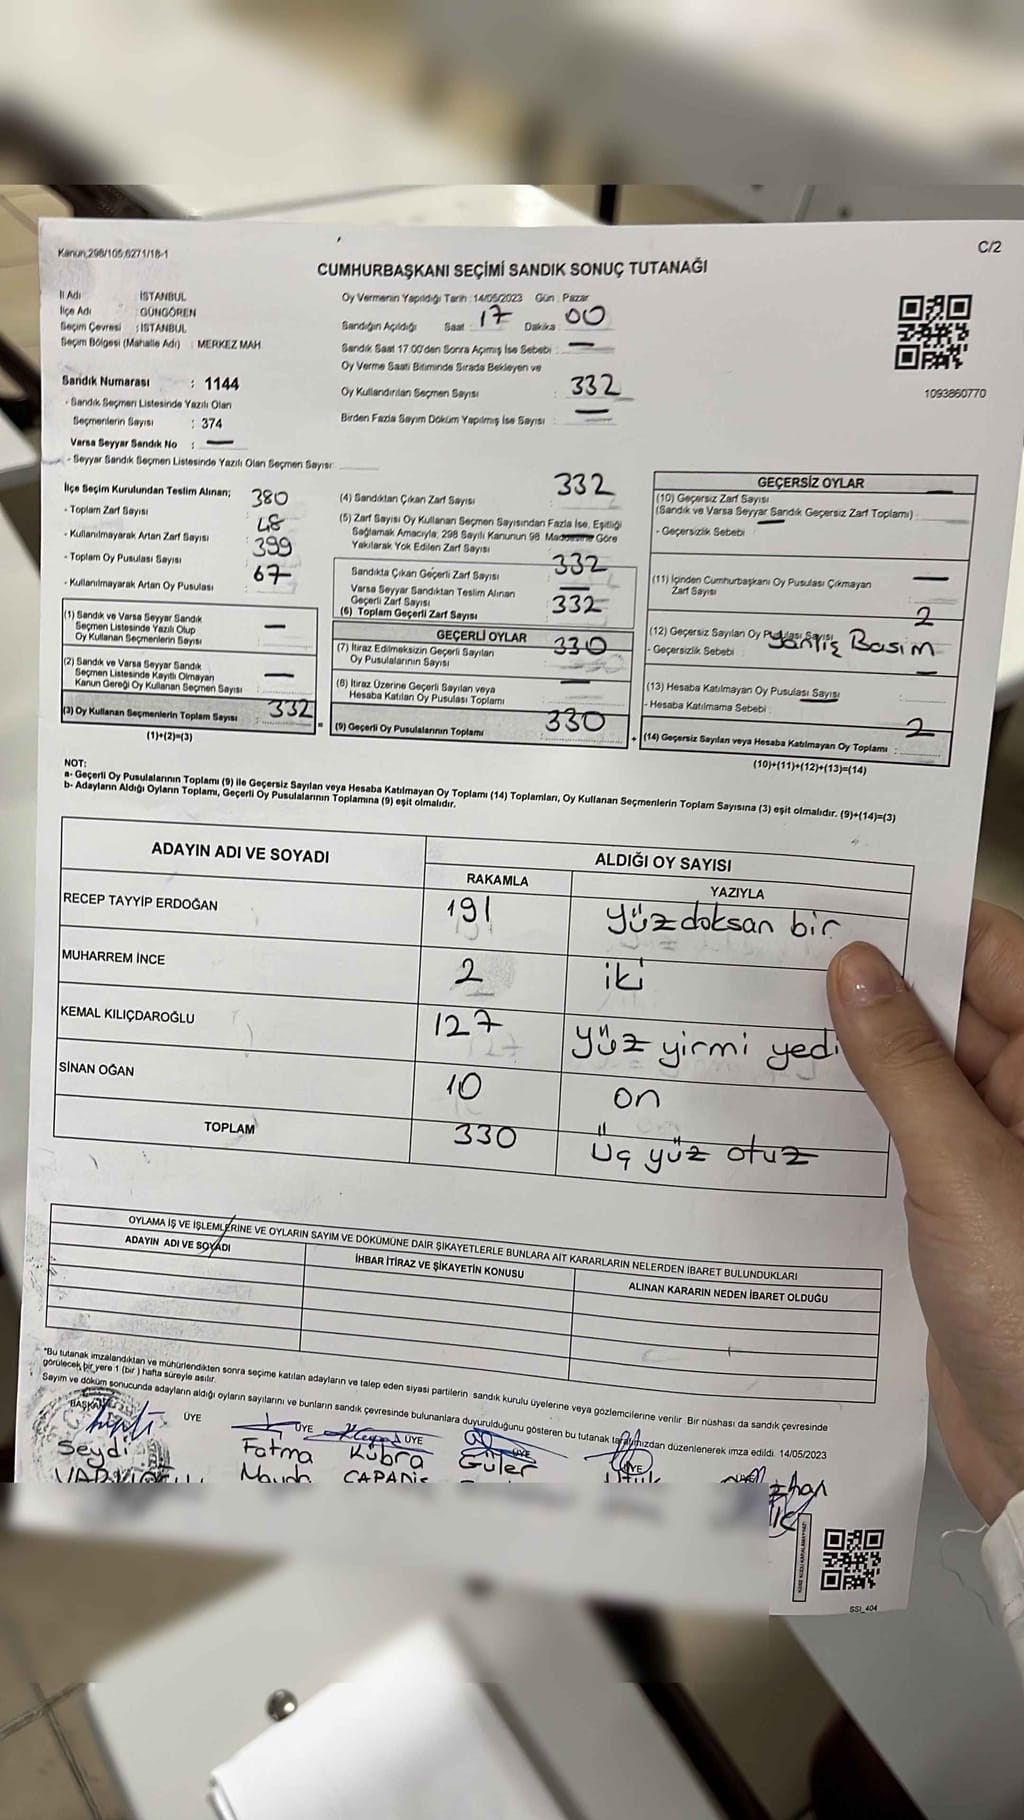 Kanun;298/105;6271/18-1
C/2
CUMHURBAŞKANI SEÇİMİ SANDIK SONUÇ TUTANAĞI
İl Adı : İSTANBUL
İlçe Adı : GÜNGÖREN
Seçim Çevresi : İSTANBUL
Seçim Bölgesi (Mahalle Adı) : MERKEZ MAH.
Sandık Numarası : 1144
- Sandık Seçmen Listesinde Yazılı Olan
Seçmenlerin Sayısı : 374
Varsa Seyyar Sandık No : —
- Seyyar Sandık Seçmen Listesinde Yazılı Olan Seçmen Sayısı:
Oy Vermenin Yapıldığı Tarih : 14/05/2023 Gün : Pazar
Sandığın Açıldığı Saat 17 Dakika 00
Sandık Saat 17.00'den Sonra Açımış İse Sebebi : —
Oy Verme Saati Bitiminde Sırada Bekleyen ve
Oy Kullandırılan Seçmen Sayısı : 332
Birden Fazla Sayım Döküm Yapılmış İse Sayısı : —
1093860770
İlçe Seçim Kurulundan Teslim Alınan;
- Toplam Zarf Sayısı : 380
- Kullanılmayarak Artan Zarf Sayısı : 48
- Toplam Oy Pusulası Sayısı : 399
- Kullanılmayarak Artan Oy Pusulası : 67
(1) Sandık ve Varsa Seyyar Sandık
Seçmen Listesinde Yazılı Olup
Oy Kullanan Seçmenlerin Sayısı : —
(2) Sandık ve Varsa Seyyar Sandık
Seçmen Listesinde Kayıtlı Olmayan
Kanun Gereği Oy Kullanan Seçmen Sayısı : —
(3) Oy Kullanan Seçmenlerin Toplam Sayısı : 332
(1)+(2)=(3)
(4) Sandıktan Çıkan Zarf Sayısı : 332
(5) Zarf Sayısı Oy Kullanan Seçmen Sayısından Fazla İse, Eşitliği
Sağlamak Amacıyla, 298 Sayılı Kanunun 98. Maddesine Göre
Yakılarak Yok Edilen Zarf Sayısı
Sandıkta Çıkan Geçerli Zarf Sayısı 332
Varsa Seyyar Sandıktan Teslim Alınan
Geçerli Zarf Sayısı —
(6) Toplam Geçerli Zarf Sayısı 332
GEÇERLİ OYLAR
(7) İtiraz Edilmeksizin Geçerli Sayılan
Oy Pusulalarının Sayısı 330
(8) İtiraz Üzerine Geçerli Sayılan veya
Hesaba Katılan Oy Pusulası Toplamı —
(9) Geçerli Oy Pusulalarının Toplamı 330
GEÇERSİZ OYLAR
(10) Geçersiz Zarf Sayısı
(Sandık ve Varsa Seyyar Sandık Geçersiz Zarf Toplamı) : —
- Geçersizlik Sebebi : —
(11) İçinden Cumhurbaşkanı Oy Pusulası Çıkmayan
Zarf Sayısı —
(12) Geçersiz Sayılan Oy Pusulası Sayısı 2
- Geçersizlik Sebebi : Yanlış Basım
(13) Hesaba Katılmayan Oy Pusulası Sayısı —
- Hesaba Katılmama Sebebi : —
(14) Geçersiz Sayılan veya Hesaba Katılmayan Oy Toplamı : 2
(10)+(11)+(12)+(13)=(14)
NOT:
a- Geçerli Oy Pusulalarının Toplamı (9) ile Geçersiz Sayılan veya Hesaba Katılmayan Oy Toplamı (14) Toplamları, Oy Kullanan Seçmenlerin Toplam Sayısına (3) eşit olmalıdır. (9)+(14)=(3)
b- Adayların Aldığı Oyların Toplamı, Geçerli Oy Pusulalarının Toplamına (9) eşit olmalıdır.
ADAYIN ADI VE SOYADI
ALDIĞI OY SAYISI
RAKAMLA YAZIYLA
RECEP TAYYİP ERDOĞAN 191 yüzdoksan bir
MUHARREM İNCE 2 iki
KEMAL KILIÇDAROĞLU 127 yüz yirmi yedi
SİNAN OĞAN 10 on
TOPLAM 330 üç yüz otuz
OYLAMA İŞ VE İŞLEMLERİNE VE OYLARIN SAYIM VE DÖKÜMÜNE DAİR ŞİKAYETLERLE BUNLARA AİT KARARLARIN NELERDEN İBARET BULUNDUKLARI
ADAYIN ADI VE SOYADI İHBAR İTİRAZ VE ŞİKAYETİN KONUSU ALINAN KARARIN NEDEN İBARET OLDUĞU
*Bu tutanak imzalandıktan ve mühürlendikten sonra seçime katılan adayların ve talep eden siyasi partilerin sandık kurulu üyelerine veya gözlemcilerine verilir. Bir nüshası da sandık çevresinde
görülecek bir yere 1 (bir) hafta süreyle asılır.
Sayım ve döküm sonucunda adayların aldığı oyların sayılarını ve bunların sandık çevresinde bulunanlara duyurulduğunu gösteren bu tutanak tarafımızdan düzenlenerek imza edildi. 14/05/2023
BAŞKAN ÜYE ÜYE ÜYE ÜYE ÜYE ÜYE
Seydi Fatma Kübra Güler
SSI_404